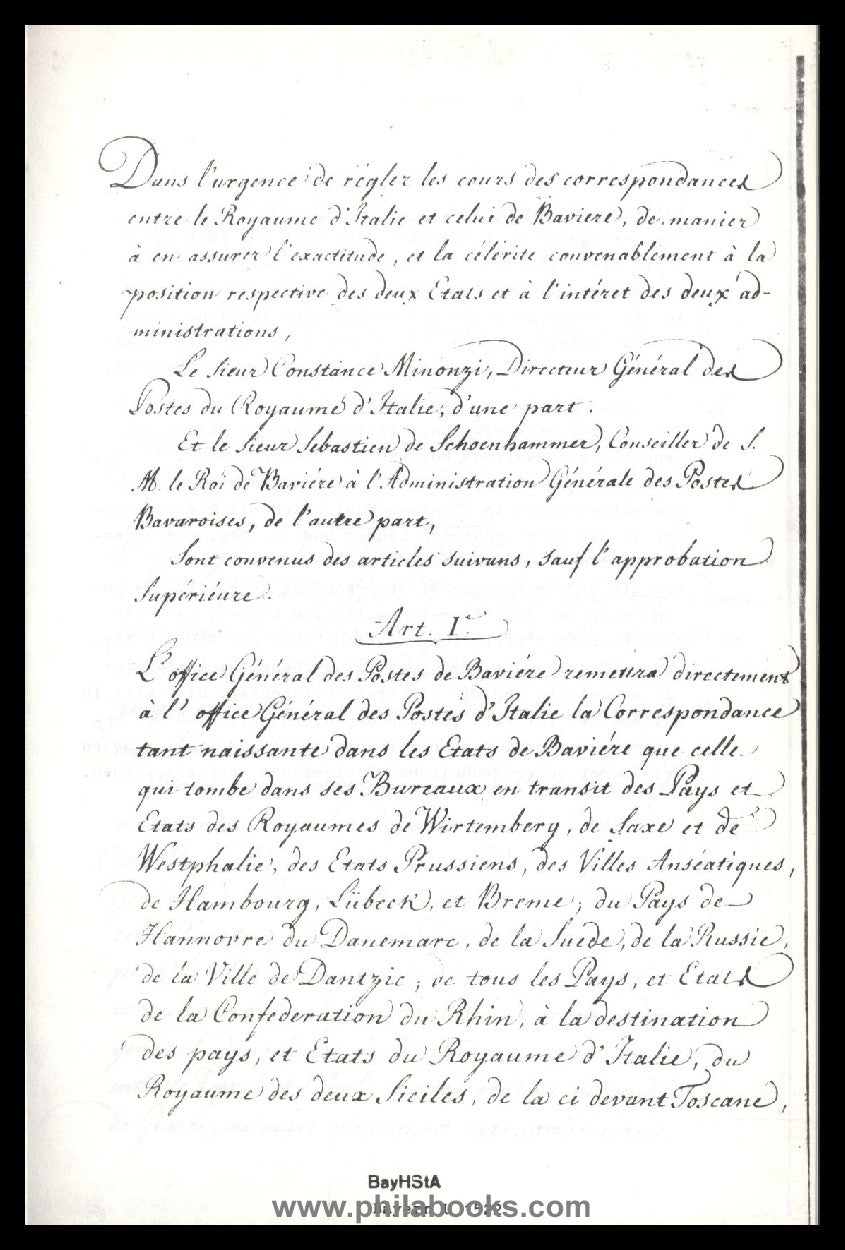 Dans l'urgence de régler les cours des correspondances
entre le Royaume d'Italie et celui de Baviere, de manier
à en assurer l'exactitude, et la célérite convenablement à la
position respective des deux Etats et à l'intéret des deux ad-
ministrations,
Le Sieur Constance Minonzi, Directeur Général des
Postes du Royaume d'Italie, d'une part.
Et le Sieur Sebastien de Schoenhammer, Conseiller de S.
M. le Roi de Baviére à l'Administration Générale des Postes
Bavaroises, de l'autre part,
Sont convenus des articles suivans, sauf l'approbation
Supérieure.
Art. I.er
L'office Général des Postes de Baviére remettra directement
à l'office Général des Postes d'Italie la Correspondance
tant naissante dans les Etats de Baviére que celle
qui tombe dans ses Bureaux en transit des Pays et
Etats des Royaumes de Wirtemberg, de Saxe et de
Westphalie, des Etats Prussiens, des Villes Anséatiques,
de Hambourg, Lübeck, et Breme; du Pays de
Hannovre du Danemarc, de la Suede, de la Russie,
de la Ville de Dantzic; de tous les Pays, et Etats
de la Confederation du Rhin, à la destination
des pays, et Etats du Royaume d'Italie, du
Royaume des deux Siciles, de la ci devant Toscane,
BayHStA
www.philabooks.com